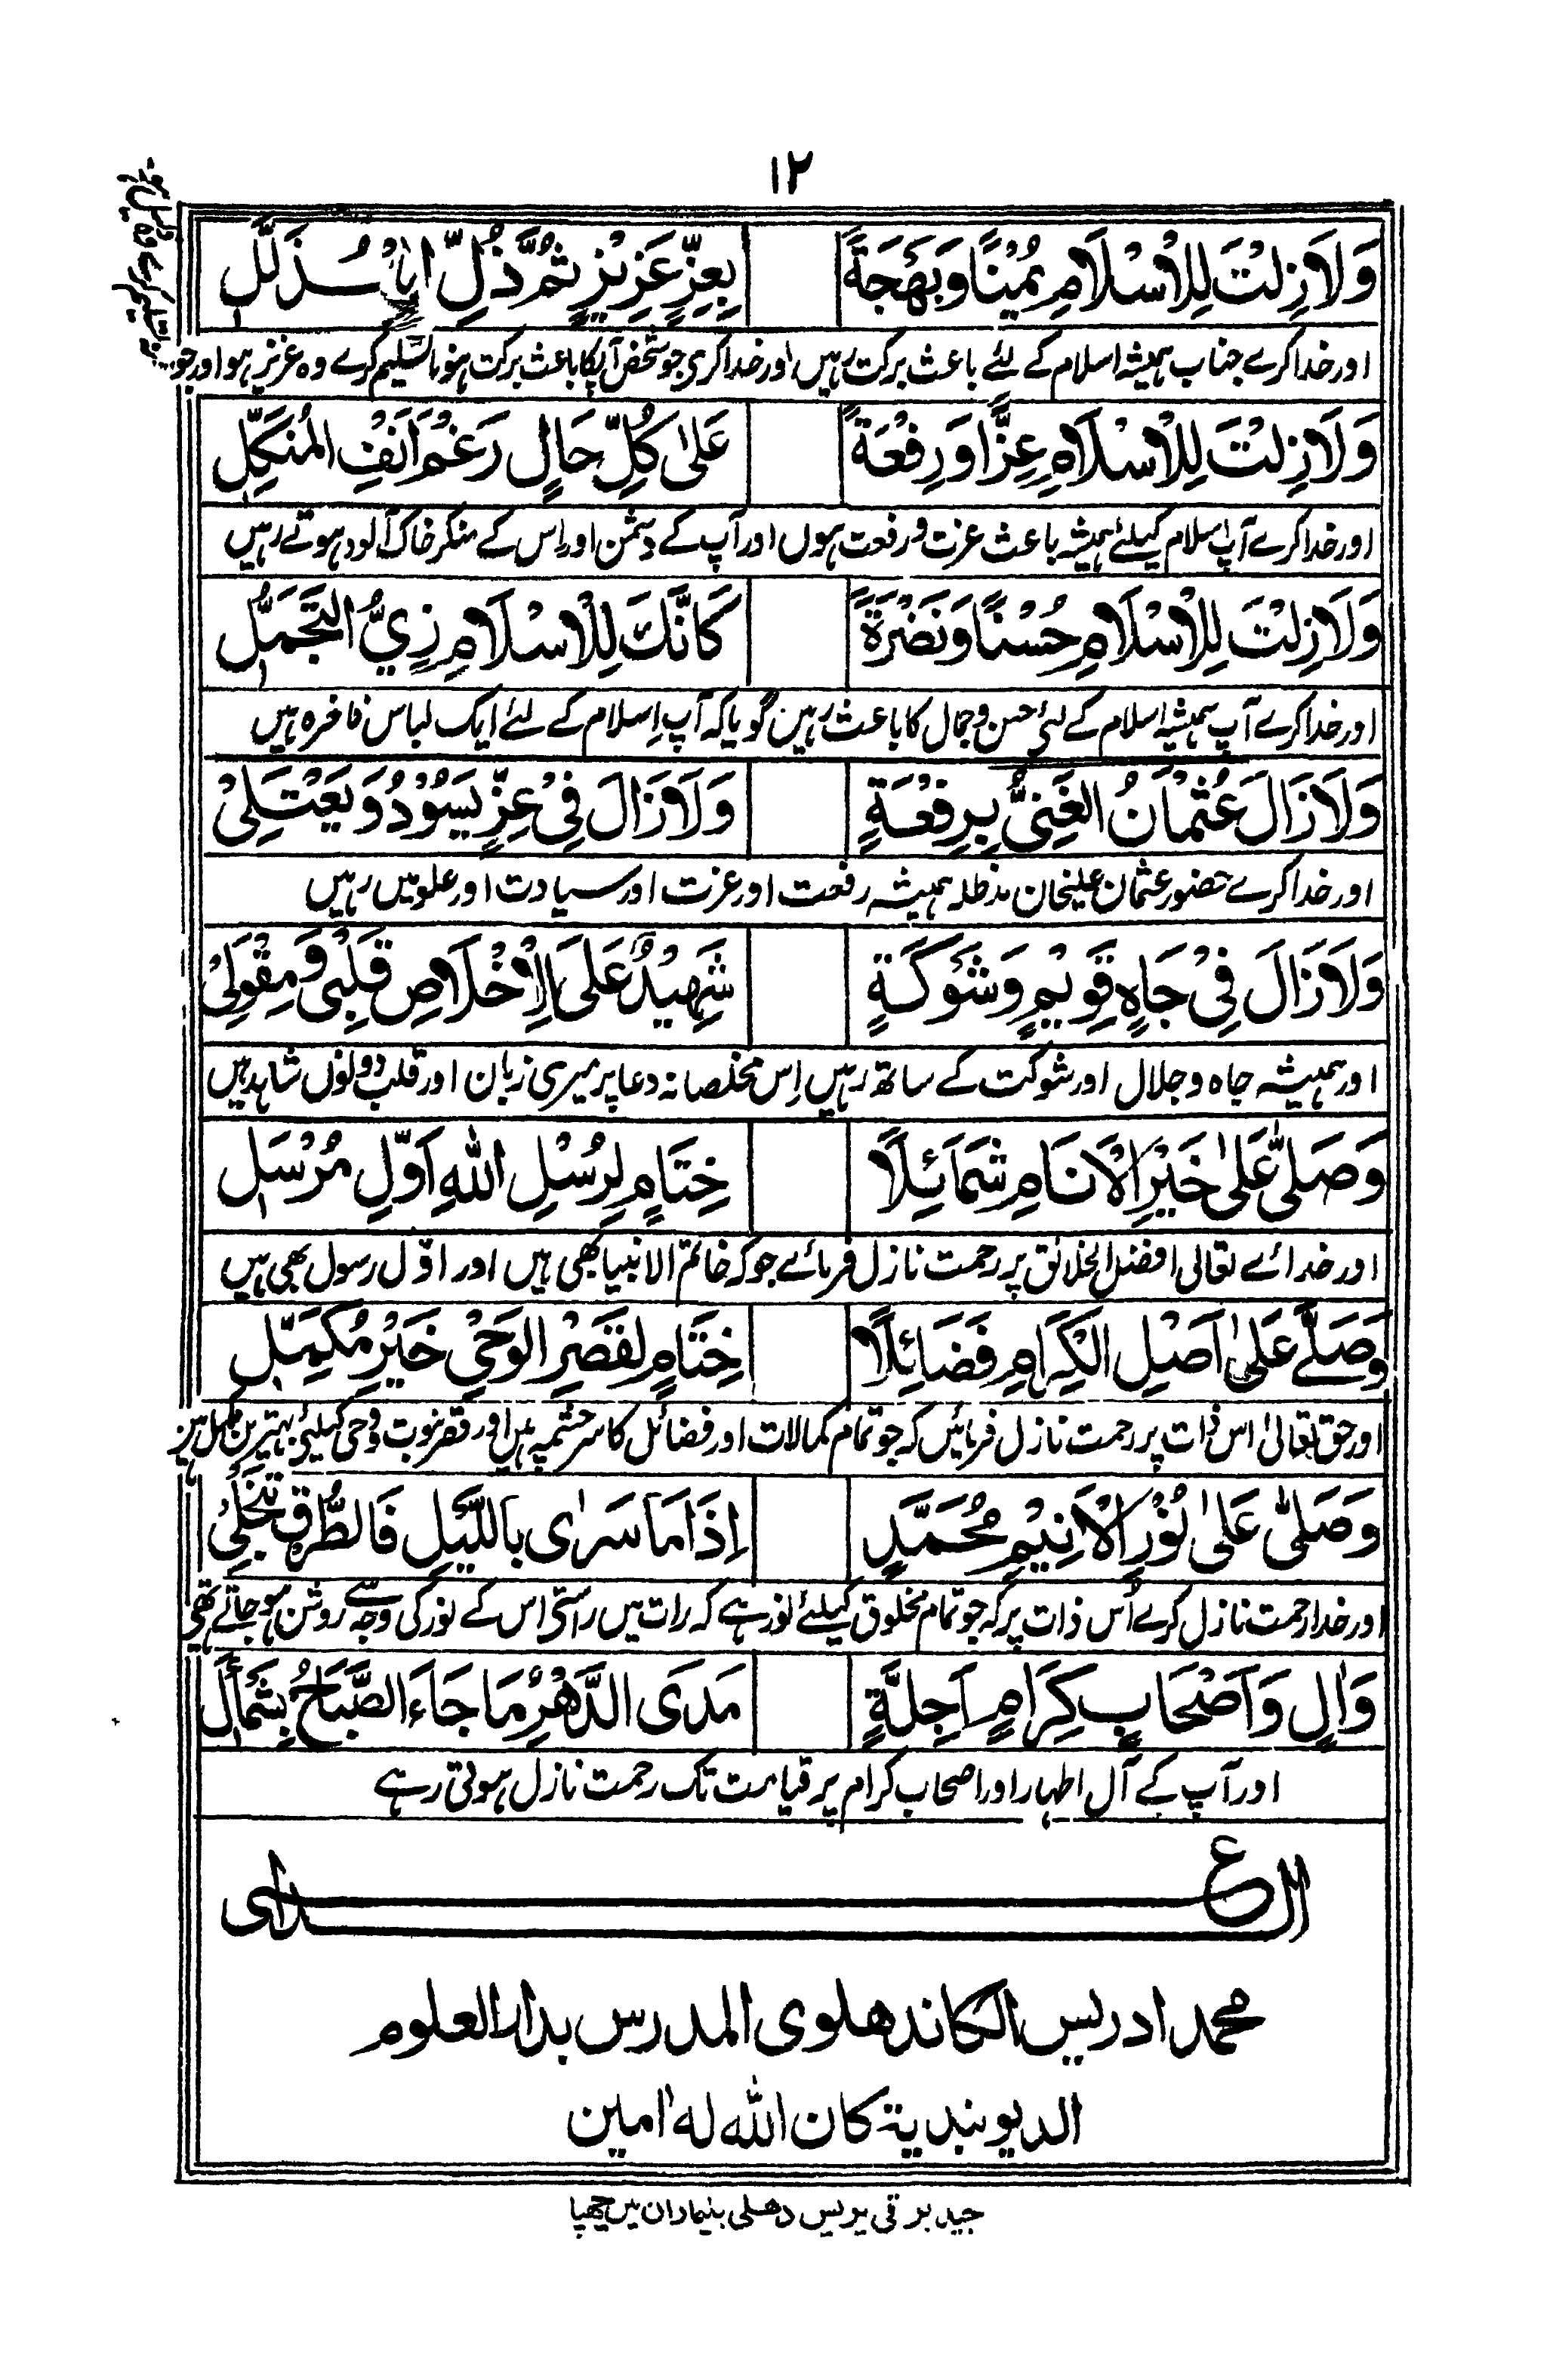 ١٢
وَلَازِلْتَ لِلْاِسْلَامِ يُمْنًا وَبَهْجَةً بِعِزِّ عَزِيْزٍ ثُمَّ ذُلِّ
اور خدا کرے جناب ہمیشہ اسلام کے لئے باعث برکت رہیں اور خدا کری جو شخص آپکا باعث برکت ہونا تسلیم کرے وہ عزیز ہو اور جو
وَلَازِلْتَ لِلْاِسْلَامِ عِزًّا وَرِفْعَةً عَلیٰ كُلِّ حَالٍ رَغْمَ اَنْفِ الْمُنَكِّلِ
اور خدا کرے آپ اسلام کیلئے ہمیشہ باعث عزت و رفعت ہوں اور آپ کے دشمن اور اِس کے منکر خاک آلود ہوتے رہیں
وَلَازِلْتَ لِلْاِسْلَامِ حُسْنًا وَنَضْرَةً كَاَنَّكَ لِلْاِسْلَامِ زِيُّ التَّجَمُّلِ
اور خدا کرے آپ ہمیشہ اسلام کے لئی حسن و جمال کا باعث رہین گویا کہ آپ اِسلام کے لئے ایک لباس فاخرہ ہیں
وَلَازَالَ عُثْمَانُ الْغَنِيُّ بِرِفْعَةٍ وَلَازَالَ فِيْ عِزٍّ يَسُوْدُ وَيَعْتَلِيْ
اور خدا کرے حضور عثمان علیخان مدظلہ ہمیشہ رفعت اور عزت اور سیادت اور علو میں رہیں
وَلَازَالَ فِيْ جَاهٍ قَوِيْمٍ وَشَوْكَةٍ شَهِيْدٌ عَلَى الْاِخْلَاصِ قَلْبِيْ وَمِقْوَلِيْ
اور ہمیشہ جاہ و جلال اور شوکت کے ساتھ رہیں اِس مخلصانہ دعا پر میری زبان اور قلب دونوں شاہد ہیں
وَصَلّٰى عَلیٰ خَيْرِ الْاَنَامِ شَمَائِلًا خِتَامٍ لِرُسْلِ اللّٰهِ اَوَّلِ مُرْسَلٍ
اور خدائے تعالی افضل الخلائق پر رحمت نازل فرمائے جو کہ خاتم الانبیا بھی ہیں اور اوّل رسول بھی ہیں
وَصَلّٰے عَلیٰ اَصْلِ الْكِرَامِ فَضَائِلًا خِتَامٍ لِقَصْرِ الْوَحْيِ خَيْرِ مُكَمِّلٍ
اور حق تعالیٰ اس ذات پر رحمت نازل فرمائیں کہ جو تمام کمالات اور فضائل کا سرچشمہ ہیں اور قصر نبوت و وحی کیلئے بہترین مکمل ہیں
وَصَلّٰى عَلیٰ نُوْرِ الْاَنِيْمِ مُحَمَّدٍ اِذَا مَا سَرٰى بِاللَّيْلِ فَالطُّرْقُ تَنْجَلِيْ
اور خدا رحمت نازل کرے اُس ذات پر کہ جو تمام مخلوق کیلئے نور ہے کہ رات میں راستی اس کے نور کی وجہ سے روشن ہو جاتے تھی
وَاٰلٍ وَاَصْحَابٍ كِرَامٍ اَجِلَّةٍ مَدَى الدَّهْرِ مَا جَاءَ الصَّبَاحُ بِشَمْأَلٍ
اور آپ کے آل اطہار اور اصحاب کرام پر قیامت تک رحمت نازل ہوتی رہے
محمد ادریس الکاندھلوی المدرس بدار العلوم
الدیوبندیۃ کان اللّٰہ لہ اٰمین
جید برقی پریس دھلی بلیماران میں چھپا